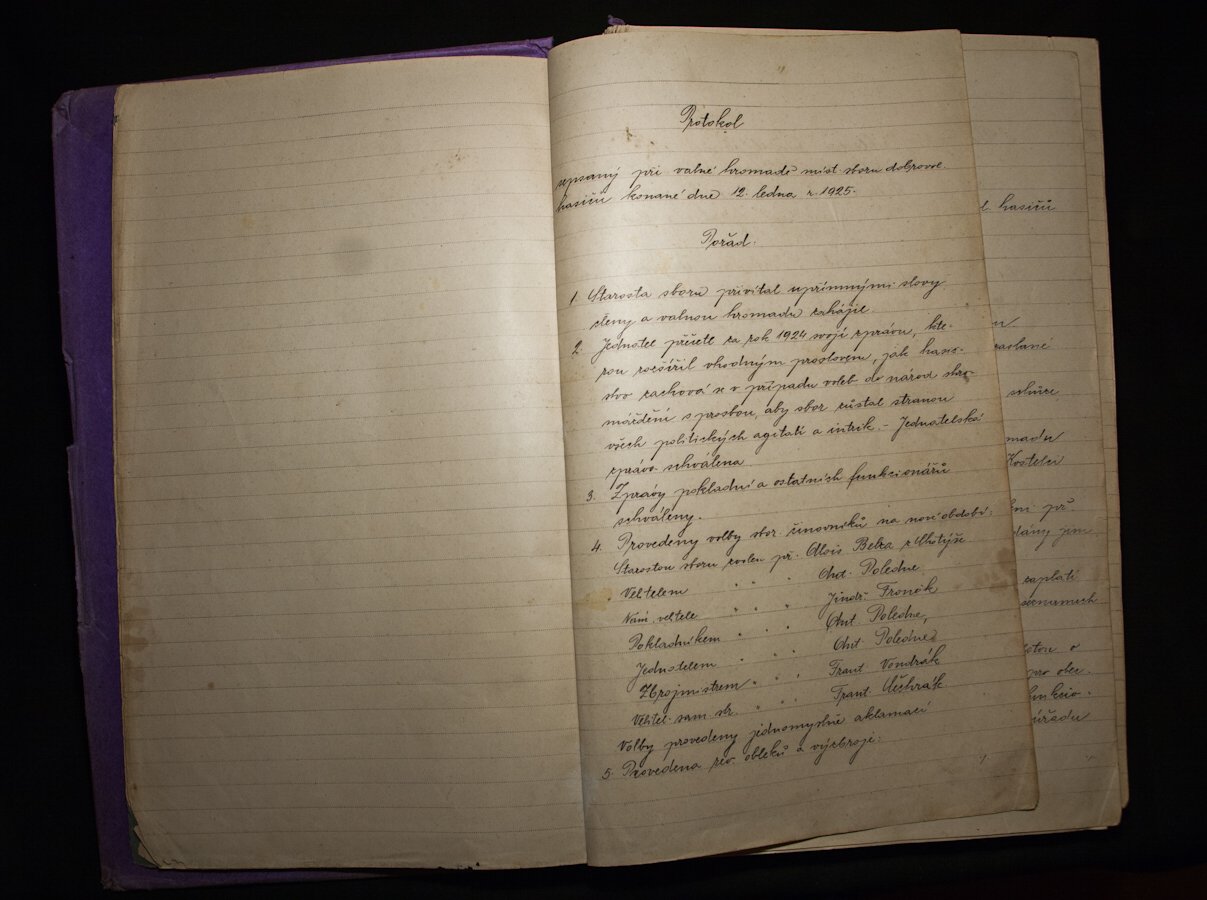 Protokol
sepsaný při valné hromadě míst. sboru dobrovol.
hasičů konané dne 12. ledna r. 1925.
Pořad:
1. Starosta sboru přivítal upřímnými slovy
členy a valnou hromadu zahájil.
2. Jednatel přečetl za rok 1924 svoji zprávu, kte-
rou rozšířil vhodným proslovem, jak hasič-
stvo zachová se v případu voleb do národ. shro-
máždění s prosbou, aby sbor zůstal stranou
všech politických agitatí a intrik. – Jednatelská
zpráva schválena
3. Zprávy pokladní a ostatních funkcionářů
schváleny.
4. Provedeny volby sbor. činovníků na nové období:
Starostou sboru zvolen př. Alois Belza z
Velitelem " " " Ant. Poledne
Nám. velitele " " " Jindř. Tronek
Pokladníkem " " " Ant. Poledne,
Jednatelem " " " Ant. Poledne
Zbrojmistrem " " " Frant. Vondrák
Velitel. sam. str. " " " Frant.
Volby provedeny jednomyslně aklamací
5. Provedena rev. obleků a výzbroje:
l. hasičů
zaslané
schůze
Kostelci
ení př.
dány jim
zaplatí
seznamech
pro obec.
funkcio-
úřadu